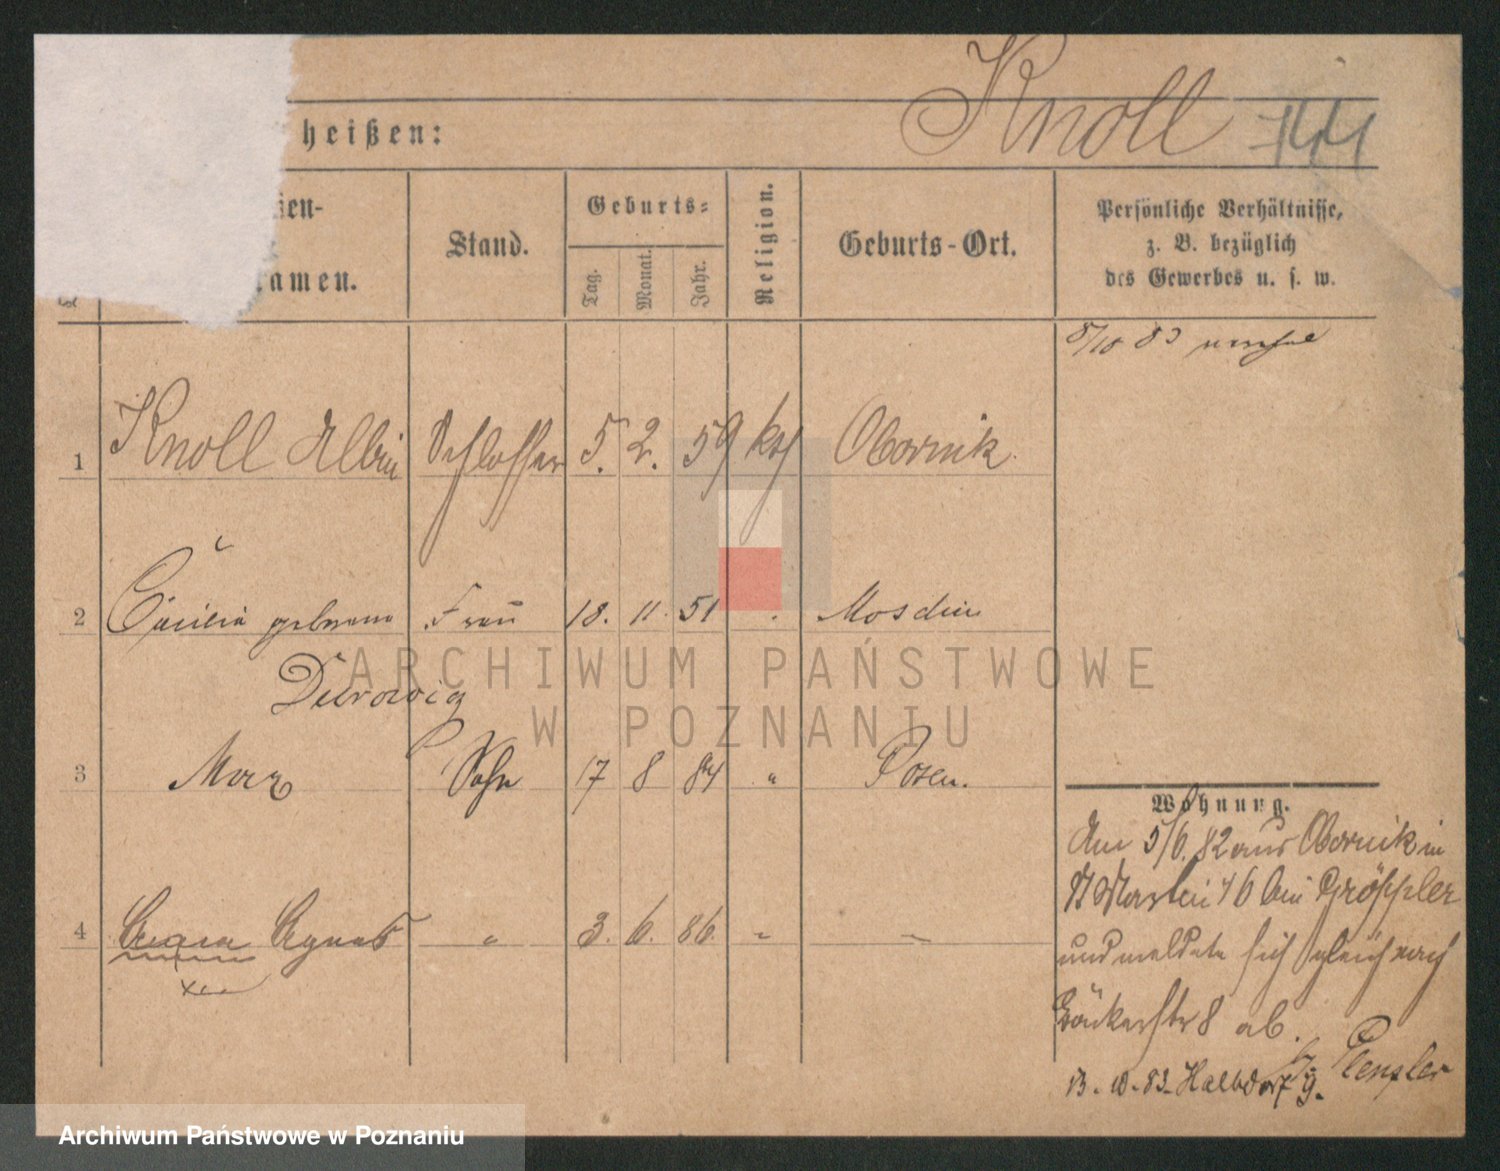 Knoll 744
heißen:
en-
amen.
Stand.
Geburts-
Tag.
Monat.
Jahr.
Religion.
Geburts-Ort.
Persönliche Verhältnisse,
z. B. bezüglich
des Gewerbes u. s. w.
8/10 83
1 Knoll Albin Schlosser 5. 2. 59 kth Obornik.
2 Cäcilia geborene Frau 18. 11. 51 "
3 Max Sohn 17 8 84 " Posen.
4 Agnes " 3. 6. 86 " "
Wohnung.
Am 5/6. 82 aus Obornik in
St Martin 46 bei
und meldete sich gleich nach
Bäckerstr 8 ab.
13. 10. 83. Halbdorf 9.
ARCHIWUM PAŃSTWOWE
W POZNANIU
Archiwum Państwowe w Poznaniu